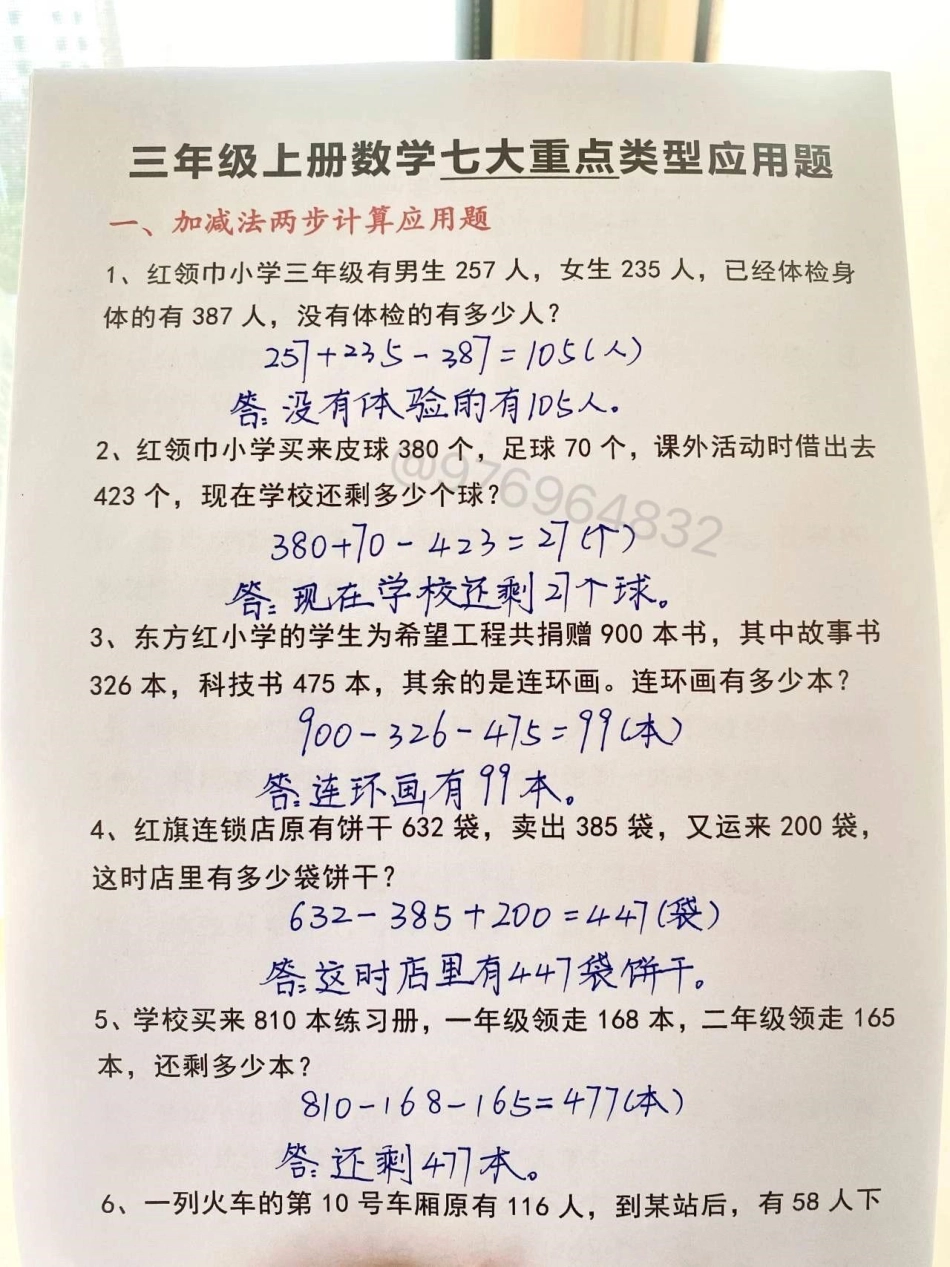 三年级上册数学七大重点类型应用题
一、加减法两步计算应用题
1、红领巾小学三年级有男生 257 人，女生 235 人，已经体检身
体的有 387 人，没有体检的有多少人？
257+235-387=105(人)
答:没有体验的有105人。
2、红领巾小学买来皮球 380 个，足球 70 个，课外活动时借出去
@976964832
423 个，现在学校还剩多少个球？
380+70-423=27(个)
答:现在学校还剩27个球。
3、东方红小学的学生为希望工程共捐赠 900 本书，其中故事书
326 本，科技书 475 本，其余的是连环画。连环画有多少本？
900-326-475=99(本)
答:连环画有99本。
4、红旗连锁店原有饼干 632 袋，卖出 385 袋，又运来 200 袋，
这时店里有多少袋饼干？
632-385+200=447(袋)
答:这时店里有447袋饼干。
5、学校买来 810 本练习册，一年级领走 168 本，二年级领走 165
本，还剩多少本？
810-168-165=477(本)
答:还剩477本。
6、一列火车的第 10 号车厢原有 116 人，到某站后，有 58 人下